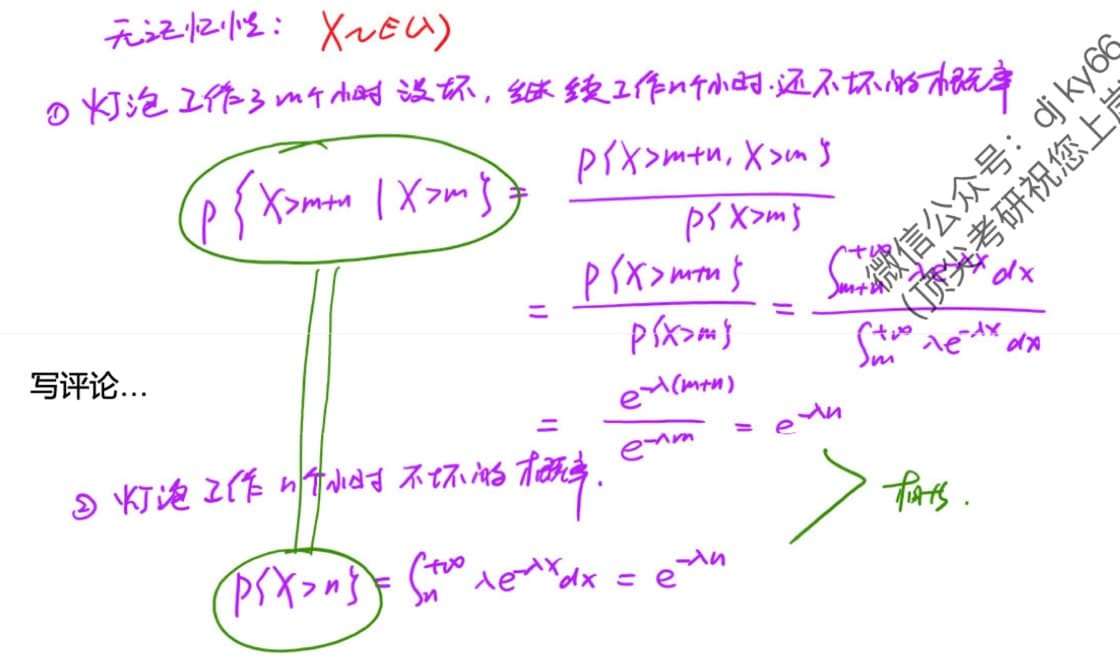 无记忆性： X~E(λ)
① 灯泡工作了m个小时没坏，继续工作n个小时.还不坏的概率
P{X>m+n | X>m} = P{X>m+n, X>m} / P{X>m}
= P{X>m+n} / P{X>m} = ∫_{m+n}^{+∞} λe^{-λx} dx / ∫_m^{+∞} λe^{-λx} dx
= e^{-λ(m+n)} / e^{-λm} = e^{-λn}
② 灯泡工作n个小时不坏的概率.
相等.
P{X>n} = ∫_n^{+∞} λe^{-λx} dx = e^{-λn}
写评论...
微信公众号：djky66
(顶尖考研祝您上岸